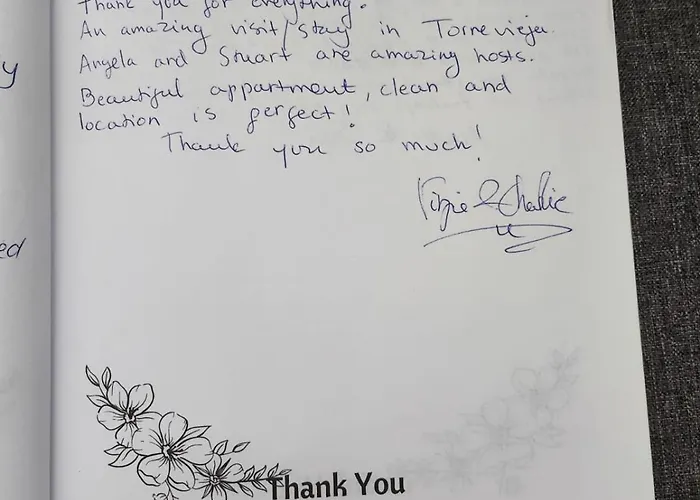 Thank you for everything.
An amazing visit/stay in Torrevieja.
Angela and Stuart are amazing hosts.
Beautiful appartment, clean and
location is perfect!
Thank you so much!
&
y
ed
Thank You